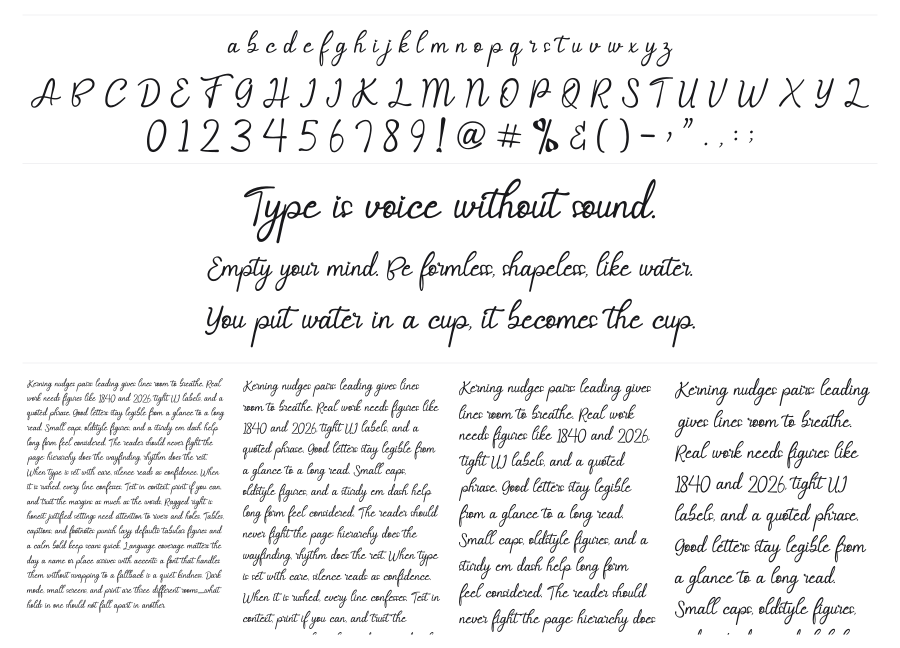 a b c d e f g h i j k l m n o p q r s t u v w x y z
A B C D E F G H I J K L M N O P Q R S T U V W X Y Z
0 1 2 3 4 5 6 7 8 9 ! @ # % & ( ) - ’ ” . , : ;
Type is voice without sound.
Empty your mind. Be formless, shapeless, like water.
You put water in a cup, it becomes the cup.
Kerning nudges pairs: leading gives lines room to breathe. Real
work needs figures like 1840 and 2026, tight UI labels, and a
quoted phrase. Good letters stay legible from a glance to a long
read. Small caps, oldstyle figures, and a sturdy em dash help
long form feel considered. The reader should never fight the
page: hierarchy does the wayfinding, rhythm does the rest.
When type is set with care, silence reads as confidence. When
it is rushed, every line confesses. Test in context, print if you can,
and trust the margins as much as the words. Ragged right is
honest; justified settings need attention to rivers and holes. Tables,
captions, and footnotes punish lazy defaults: tabular figures and
a calm bold keep scans quick. Language coverage matters the
day a name or place arrives with accents: a font that handles
them without swapping to a fallback is a quiet kindness. Dark
mode, small screens, and print are three different rooms—what
holds in one should not fall apart in another.
Kerning nudges pairs: leading gives lines
room to breathe. Real work needs figures like
1840 and 2026, tight UI labels, and a
quoted phrase. Good letters stay legible from
a glance to a long read. Small caps,
oldstyle figures, and a sturdy em dash help
long form feel considered. The reader should
never fight the page: hierarchy does the
wayfinding, rhythm does the rest. When type
is set with care, silence reads as confidence.
When it is rushed, every line confesses. Test in
context, print if you can, and trust the
Kerning nudges pairs: leading gives
lines room to breathe. Real work
needs figures like 1840 and 2026,
tight UI labels, and a quoted
phrase. Good letters stay legible
from a glance to a long read.
Small caps, oldstyle figures, and a
sturdy em dash help long form
feel considered. The reader should
never fight the page: hierarchy does
Kerning nudges pairs: leading
gives lines room to breathe.
Real work needs figures like
1840 and 2026, tight UI
labels, and a quoted phrase.
Good letters stay legible from
a glance to a long read.
Small caps, oldstyle figures,